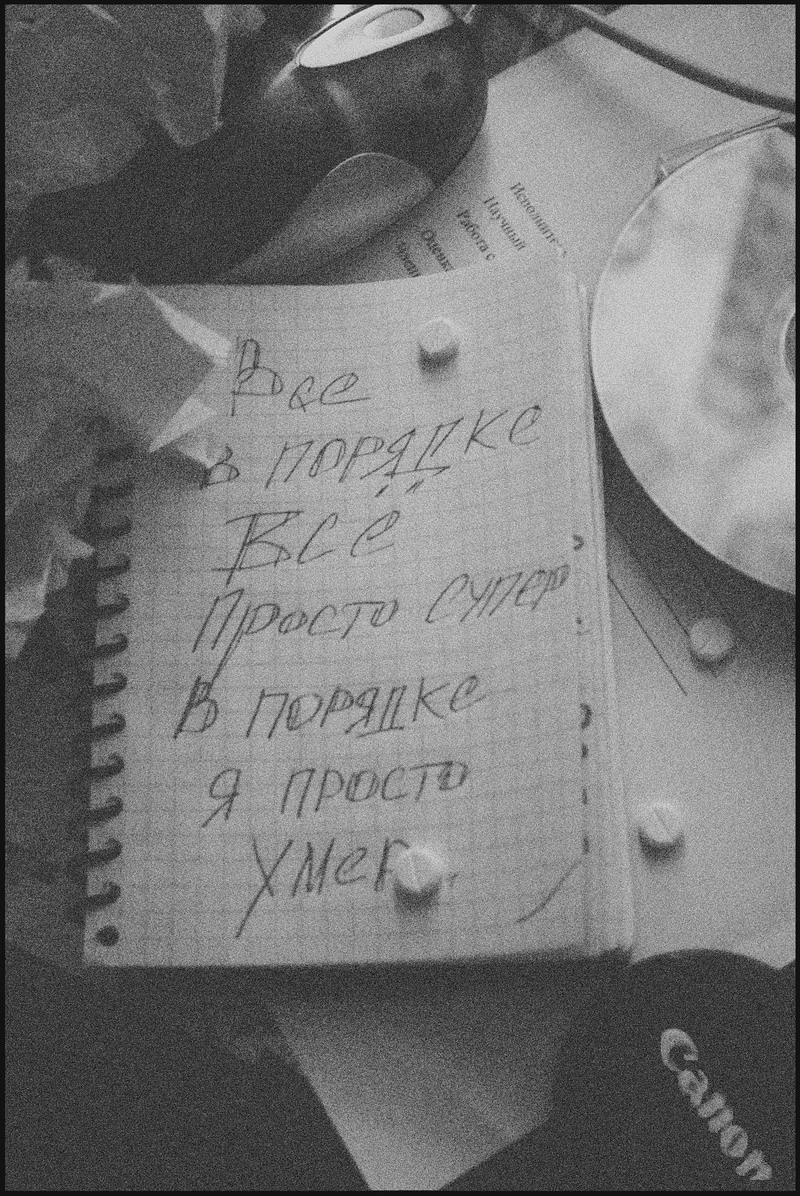 Исполнит
Научный
Работа с
Оценка
Все
в порядке
Всё
Просто супер
В порядке
я просто
умер
Canon